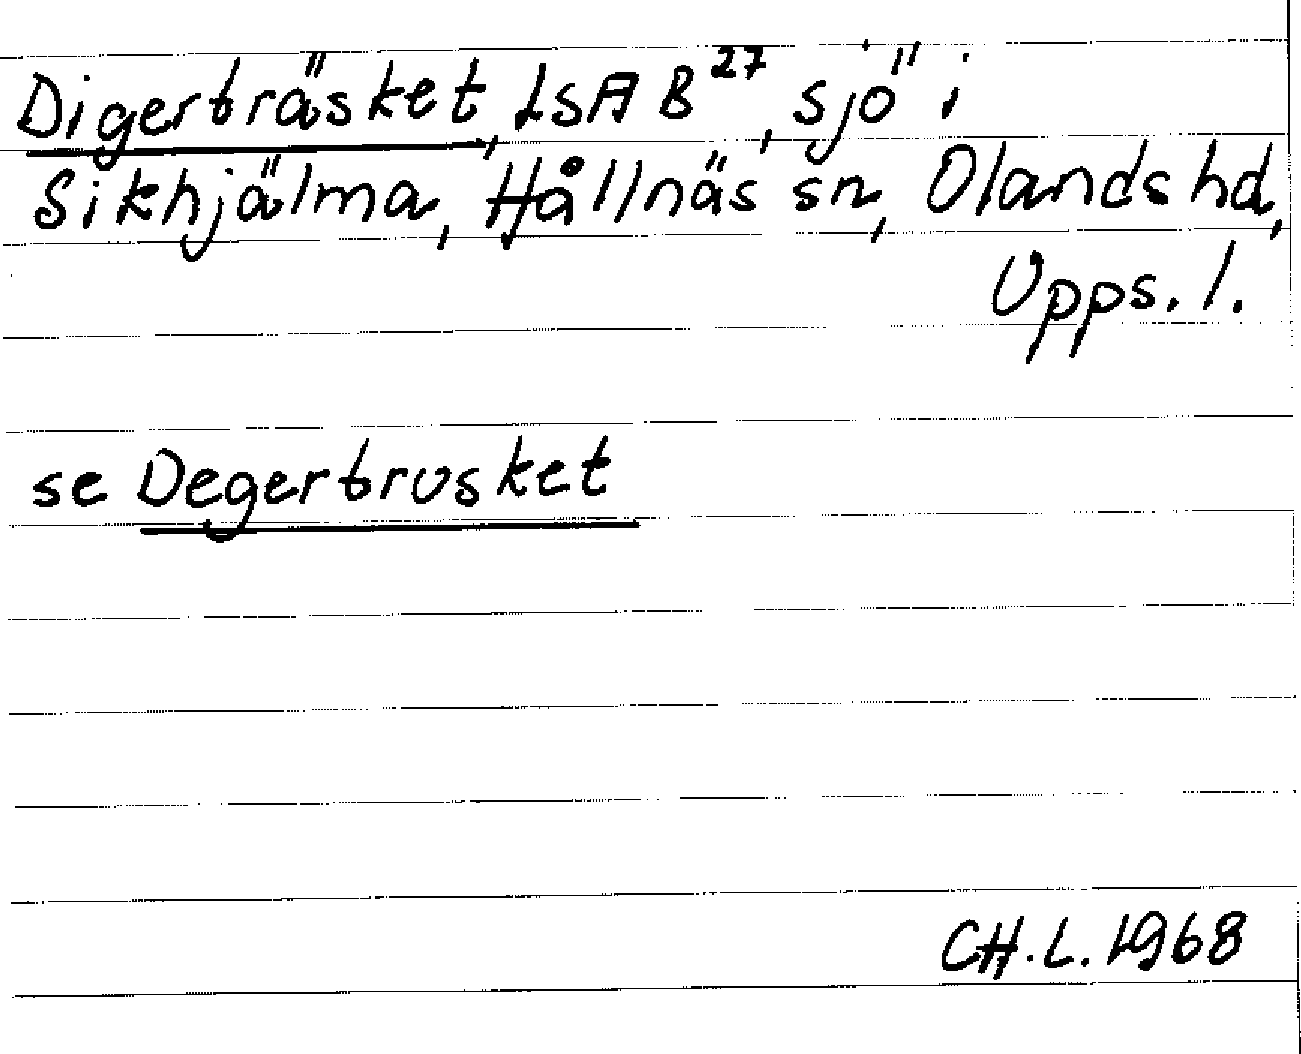 Digerträsket, LSA B27, sjö i
Sikhjälma, Hållnäs sn, Olands hd,
Upps. l.
se Degertrusket
CH.L. 1968